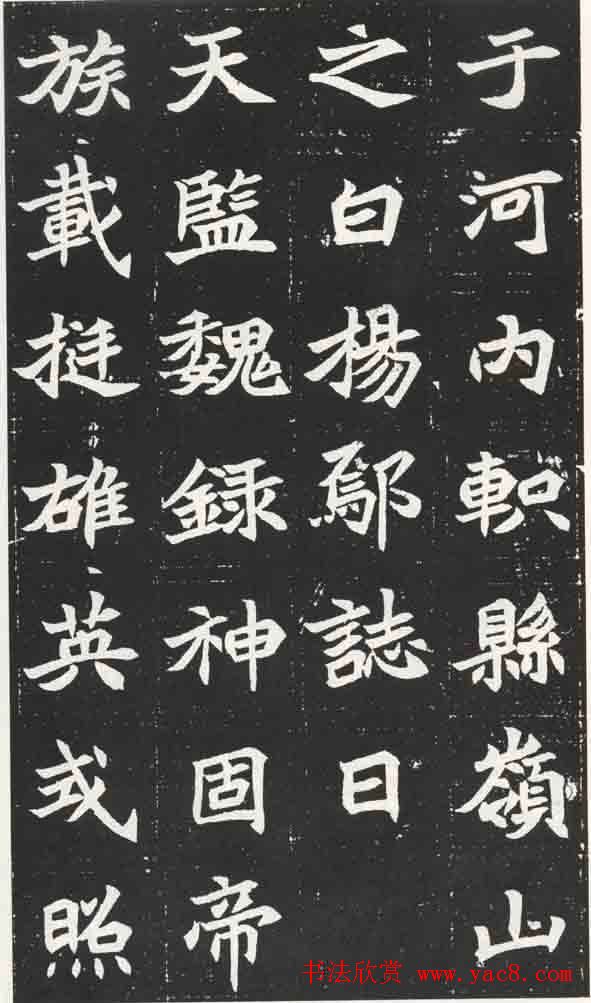 于河内軹縣嶺山
之白楊鄔誌曰
天監魏録神固帝
族載挺雄英或照
书法欣赏 www.yac8.com